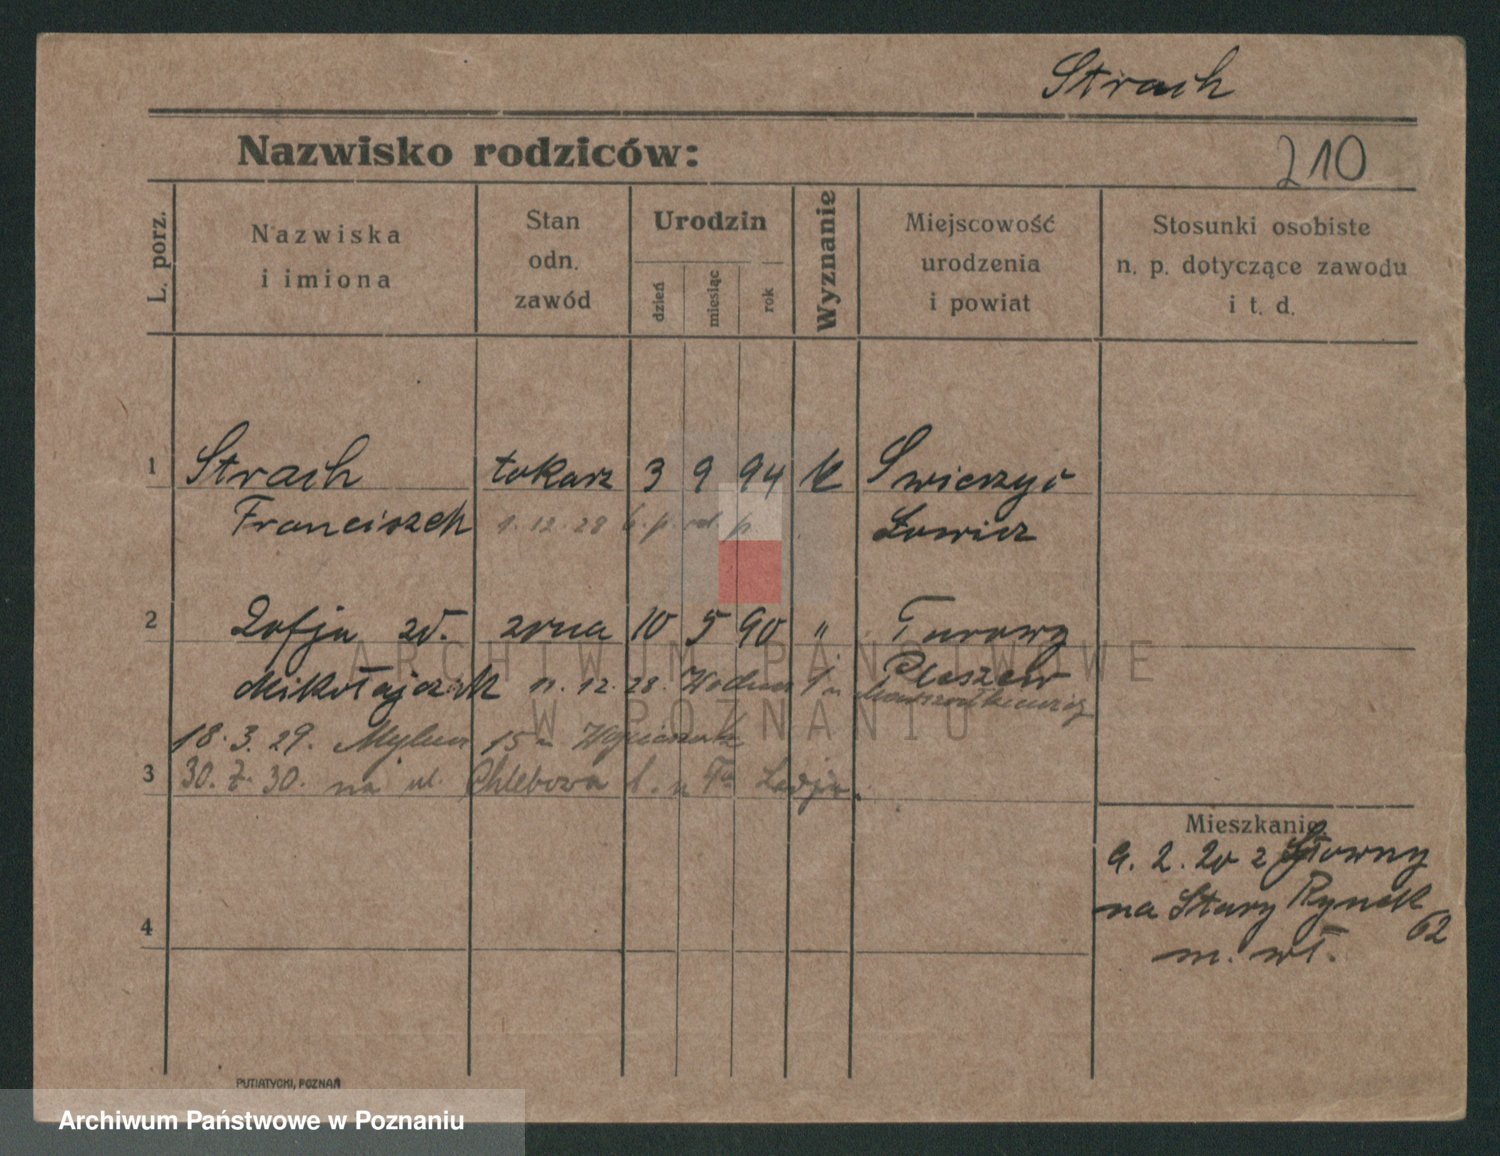 Strach
Nazwisko rodziców:
210
L. porz.
Nazwiska
i imiona
Stan
odn.
zawód
Urodzin
dzień
miesiąc
rok
Wyznanie
Miejscowość
urodzenia
i powiat
Stosunki osobiste
n. p. dotyczące zawodu
i t. d.
1 Strach tokarz 3 9 94 k Swierzyż
Franciszek 1. 12. 28 Łowicz
2 Zofja zd. żona 10 5 90 " Turowy
Mikołajczak 11. 12. 28. Pleszew
18. 3. 29. 15
3 30. 7. 30. na ul. Chlebowa
Mieszkanie
9. 2. 20 z
na Stary Rynek
62
m. wł.
4
PUTIATYCKI, POZNAŃ
ARCHIWUM PAŃSTWOWE
W POZNANIU
Archiwum Państwowe w Poznaniu